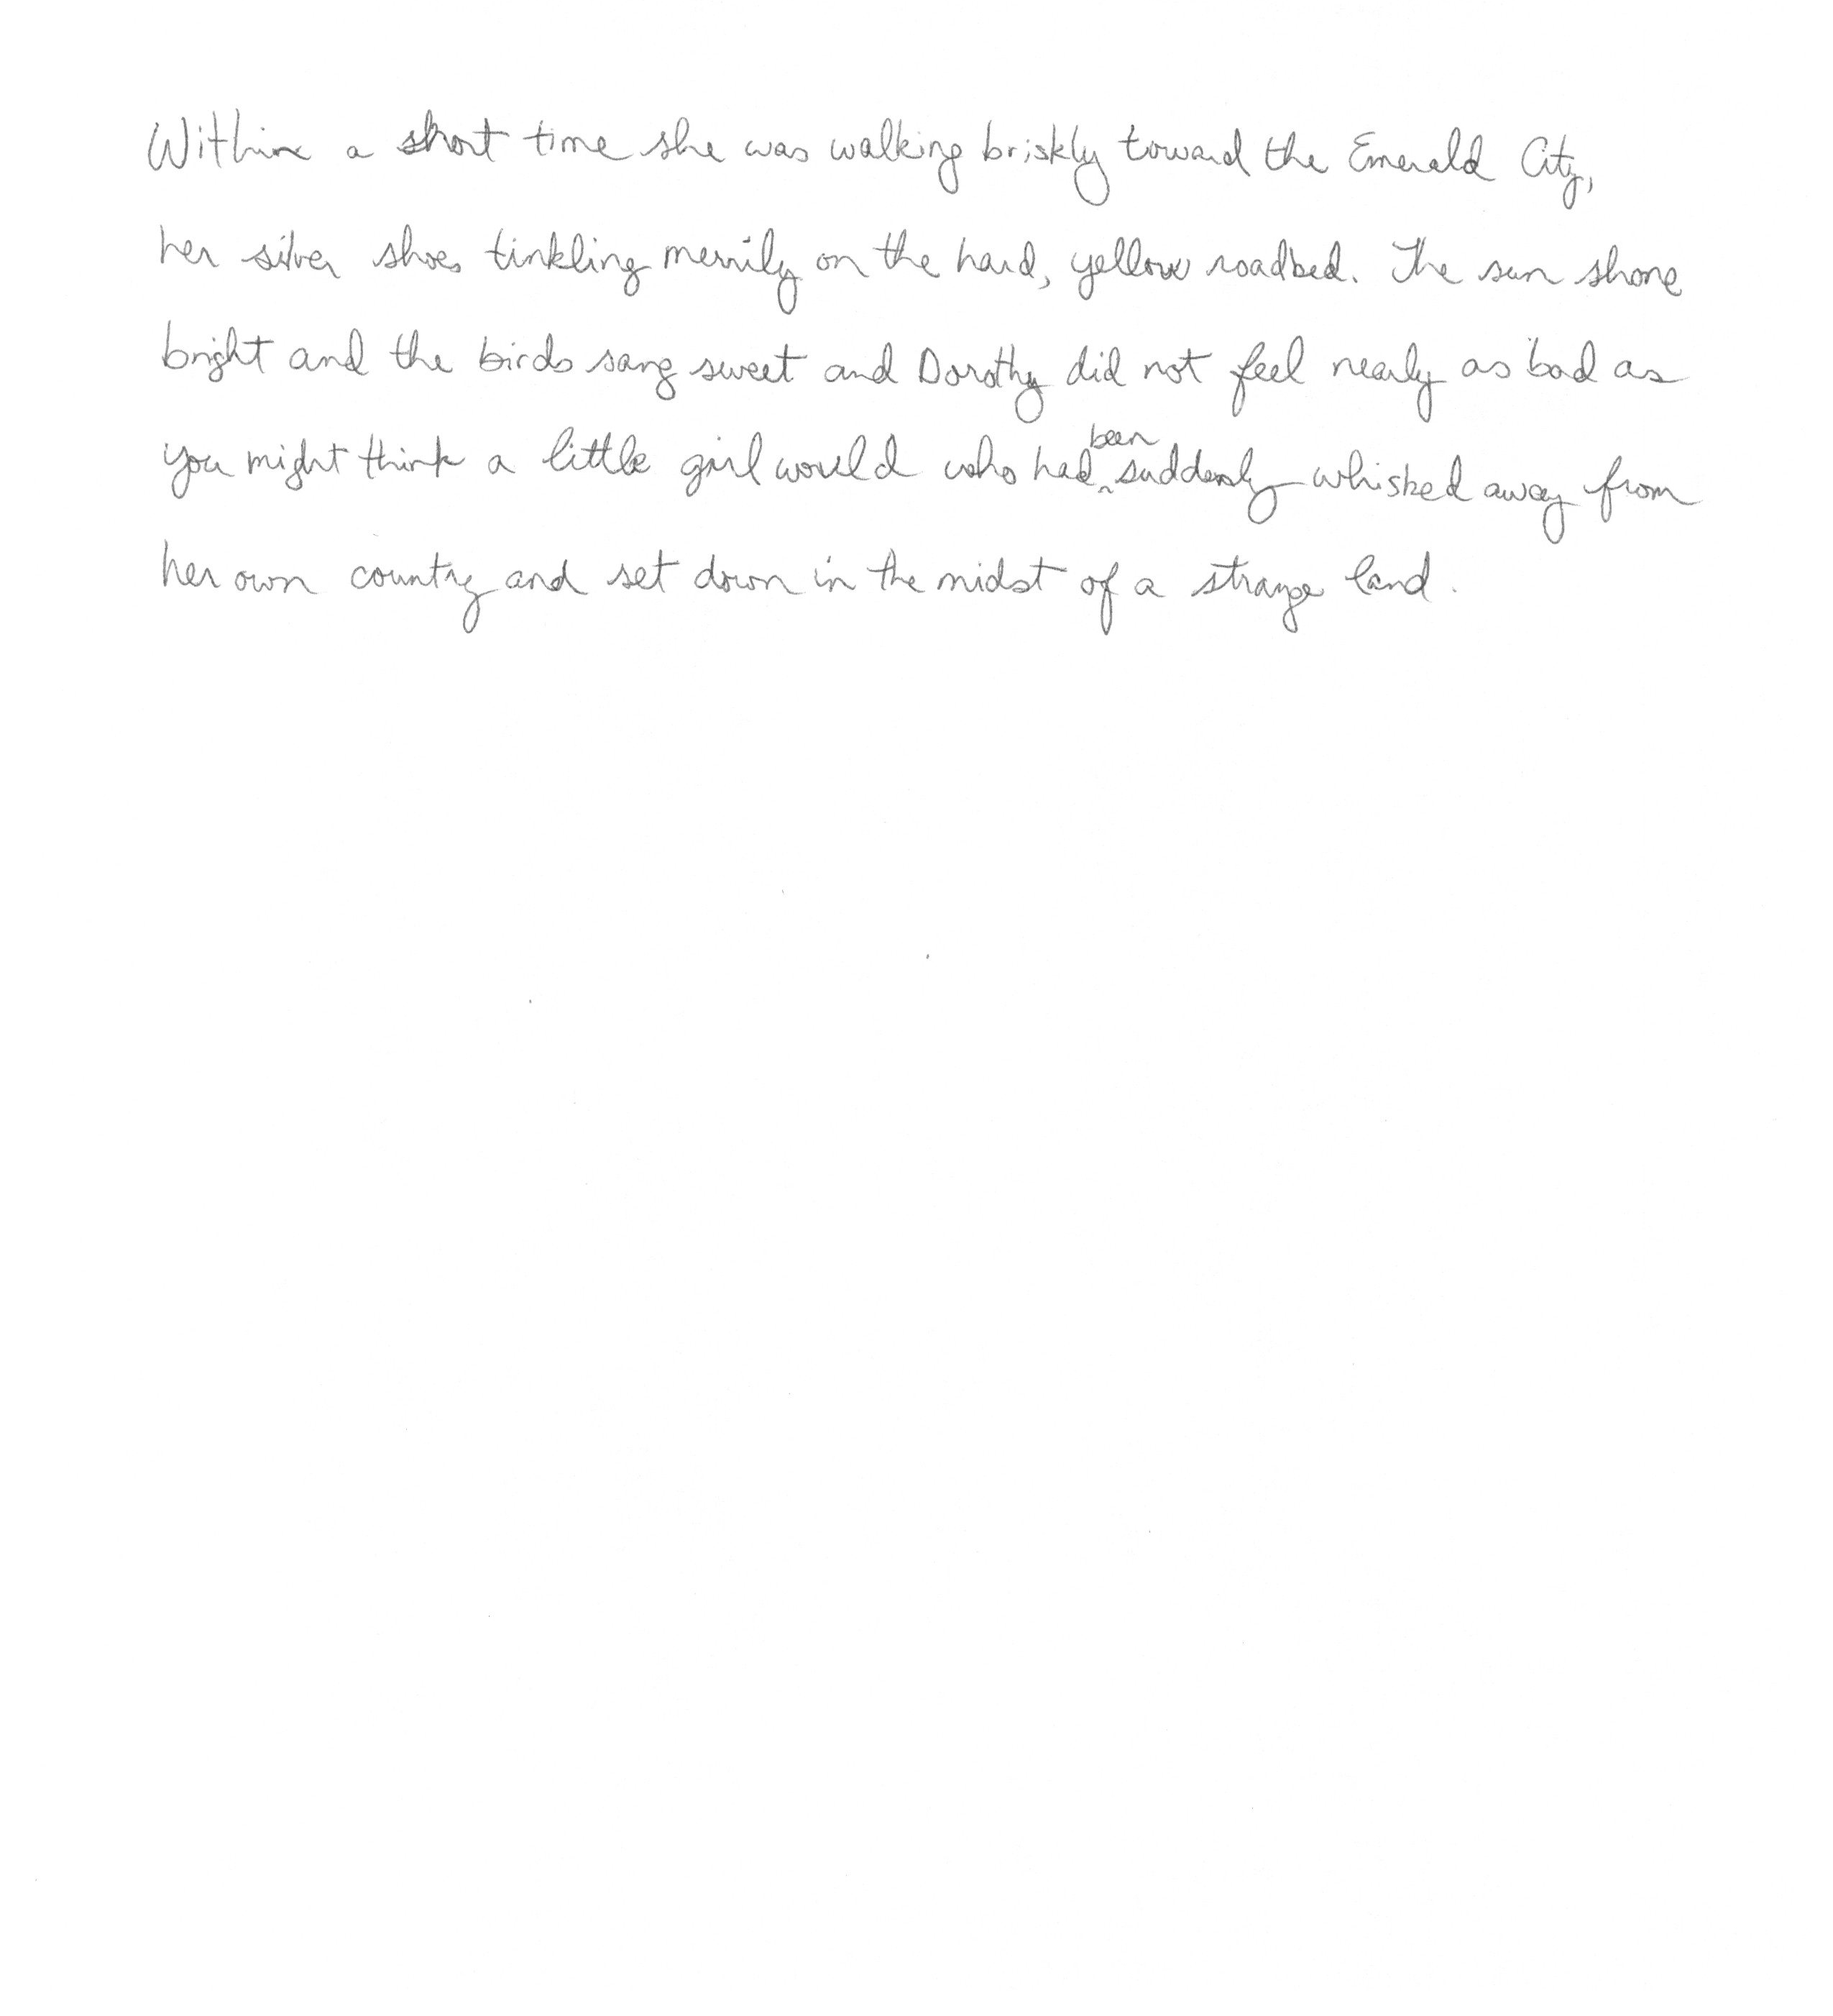 Within a short time she was walking briskly toward the Emerald City,
her silver shoes tinkling merrily on the hard, yellow roadbed. The sun shone
bright and the birds sang sweet and Dorothy did not feel nearly as bad as
you might think a little girl would who had been suddenly whisked away from
her own country and set down in the midst of a strange land.